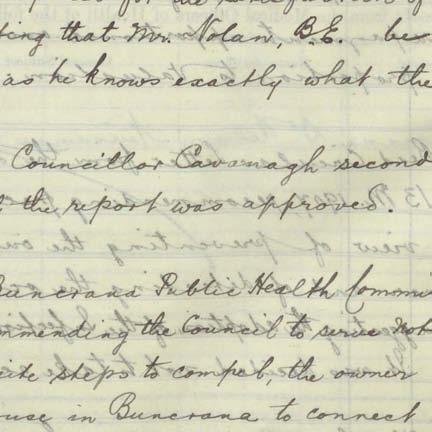 ting that Mr. Nolan, B.E. be
as he knows exactly what the
Councillor Cavanagh second
the report was approved.
Buncrana Public Health Commi
mmending the Council to serve not
steps to compel, the owner
use in Buncrana to connect